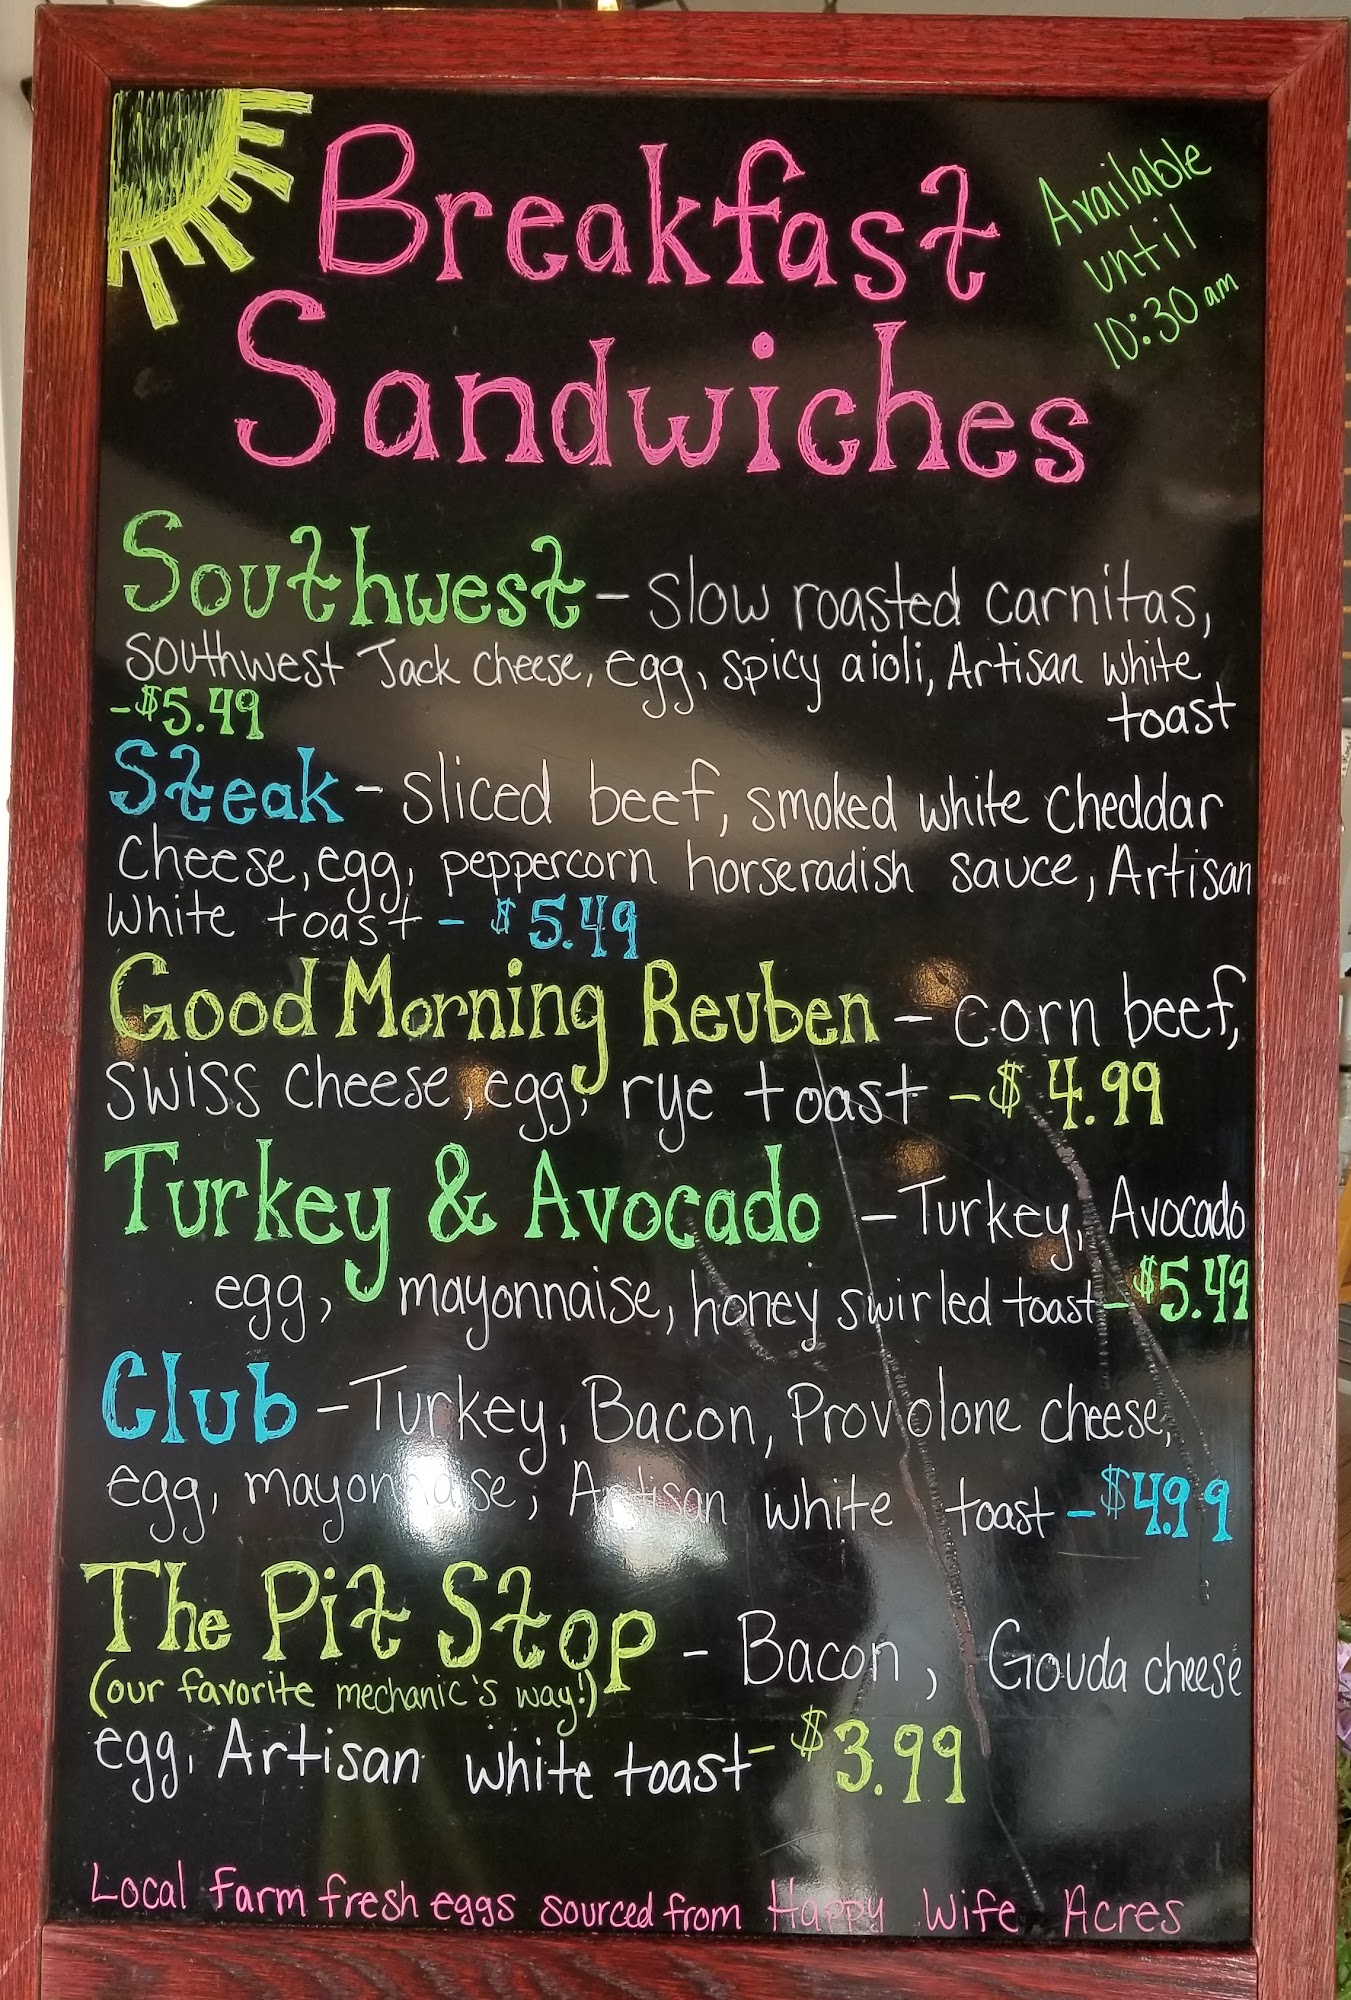 Breakfast
Sandwiches
Available
until
10:30 am
Southwest - slow roasted carnitas,
southwest Jack cheese, egg, spicy aioli, Artisan white
toast
-$5.49
Steak - sliced beef, smoked white cheddar
cheese, egg, peppercorn horseradish sauce, Artisan
white toast - $5.49
Good Morning Reuben - corn beef,
swiss cheese, egg, rye toast - $4.99
Turkey & Avocado - Turkey, Avocado
egg, mayonnaise, honey swirled toast - $5.49
Club - Turkey, Bacon, Provolone cheese,
egg, mayonnaise, Artisan white toast - $4.99
The Pit Stop - Bacon, Gouda cheese
(our favorite mechanic's way!)
egg, Artisan white toast - $3.99
Local farm fresh eggs sourced from Happy Wife Acres